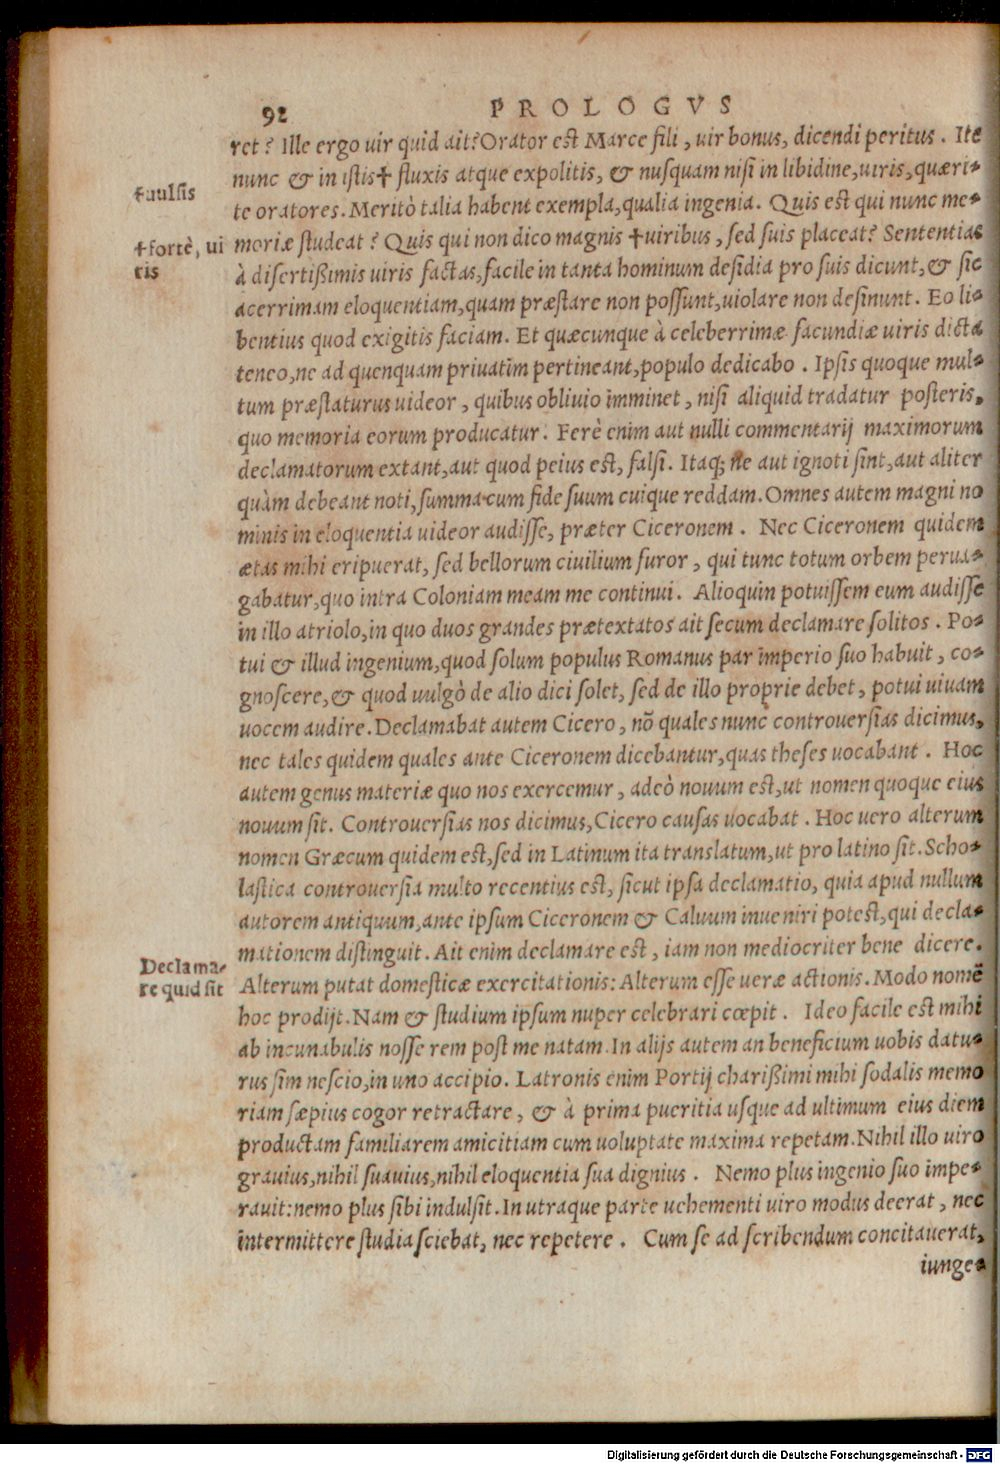 92 PROLOGVS
ret? Ille ergo uir quid ait? Orator est Marce fili, uir bonus, dicendi peritus. Ite
nunc & in istis† fluxis atque expolitis, & nusquam nisi in libidine, uiris, quæri-
te oratores. Meritò talia habent exempla, qualia ingenia. Quis est qui nunc me-
moriæ studeat? Quis qui non dico magnis †uiribus, sed suis placeat? Sententias
à disertißimis uiris factas, facile in tanta hominum desidia pro suis dicunt, & sic
acerrimam eloquentiam, quam præstare non possunt, uiolare non desinunt. Eo li-
bentius quod exigitis faciam. Et quæcunque à celeberrimæ facundiæ uiris dicta
teneo, ne ad quenquam priuatim pertineant, populo dedicabo. Ipsis quoque mul-
tum præstaturus uideor, quibus obliuio imminet, nisi aliquid tradatur posteris,
quo memoria eorum producatur. Ferè enim aut nulli commentarij maximorum
declamatorum extant, aut quod peius est, falsi. Itaq; ne aut ignoti sint, aut aliter
quàm debeant noti, summa cum fide suum cuique reddam. Omnes autem magni no
minis in eloquentia uideor audisse, præter Ciceronem. Nec Ciceronem quidem
ætas mihi eripuerat, sed bellorum ciuilium furor, qui tunc totum orbem perua-
gabatur, quo intra Coloniam meam me continui. Alioquin potuissem eum audisse
in illo atriolo, in quo duos grandes prætextatos ait secum declamare solitos. Po-
tui & illud ingenium, quod solum populus Romanus par imperio suo habuit, co-
gnoscere, & quod uulgò de alio dici solet, sed de illo proprie debet, potui uiuam
uocem audire. Declamabat autem Cicero, nõ quales nunc controuersias dicimus,
nec tales quidem quales ante Ciceronem dicebantur, quas theses uocabant. Hoc
autem genus materiæ quo nos exercemur, adeò nouum est, ut nomen quoque eius
nouum sit. Controuersias nos dicimus, Cicero causas uocabat. Hoc uero alterum
nomen Græcum quidem est, sed in Latinum ita translatum, ut pro latino sit. Scho-
lastica controuersia multo recentius est, sicut ipsa declamatio, quia apud nullum
autorem antiquum, ante ipsum Ciceronem & Caluum inueniri potest, qui decla-
mationem distinguit. Ait enim declamare est, iam non mediocriter bene dicere.
Alterum putat domesticæ exercitationis: Alterum esse ueræ actionis. Modo nomẽ
hoc prodijt. Nam & studium ipsum nuper celebrari cœpit. Ideo facile est mihi
ab incunabulis nosse rem post me natam. In alijs autem an beneficium uobis datu-
rus sim nescio, in uno accipio. Latronis enim Portij charißimi mihi sodalis memo
riam sæpius cogor retractare, & à prima pueritia usque ad ultimum eius diem
productam familiarem amicitiam cum uoluptate maxima repetam. Nihil illo uiro
grauius, nihil suauius, nihil eloquentia sua dignius. Nemo plus ingenio suo impe-
rauit: nemo plus sibi indulsit. In utraque parte uehementi uiro modus deerat, nec
intermittere studia sciebat, nec repetere. Cum se ad scribendum concitauerat,
iunge-
†auulsis
†fortè, ui
ris
Declama-
re quid sit
Digitalisierung gefördert durch die Deutsche Forschungsgemeinschaft - DFG